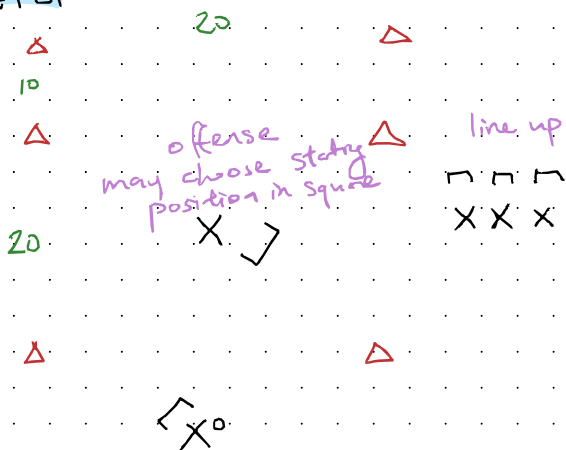 20
10
offense
may choose starting
position in square
line up
X X X
20
X
X